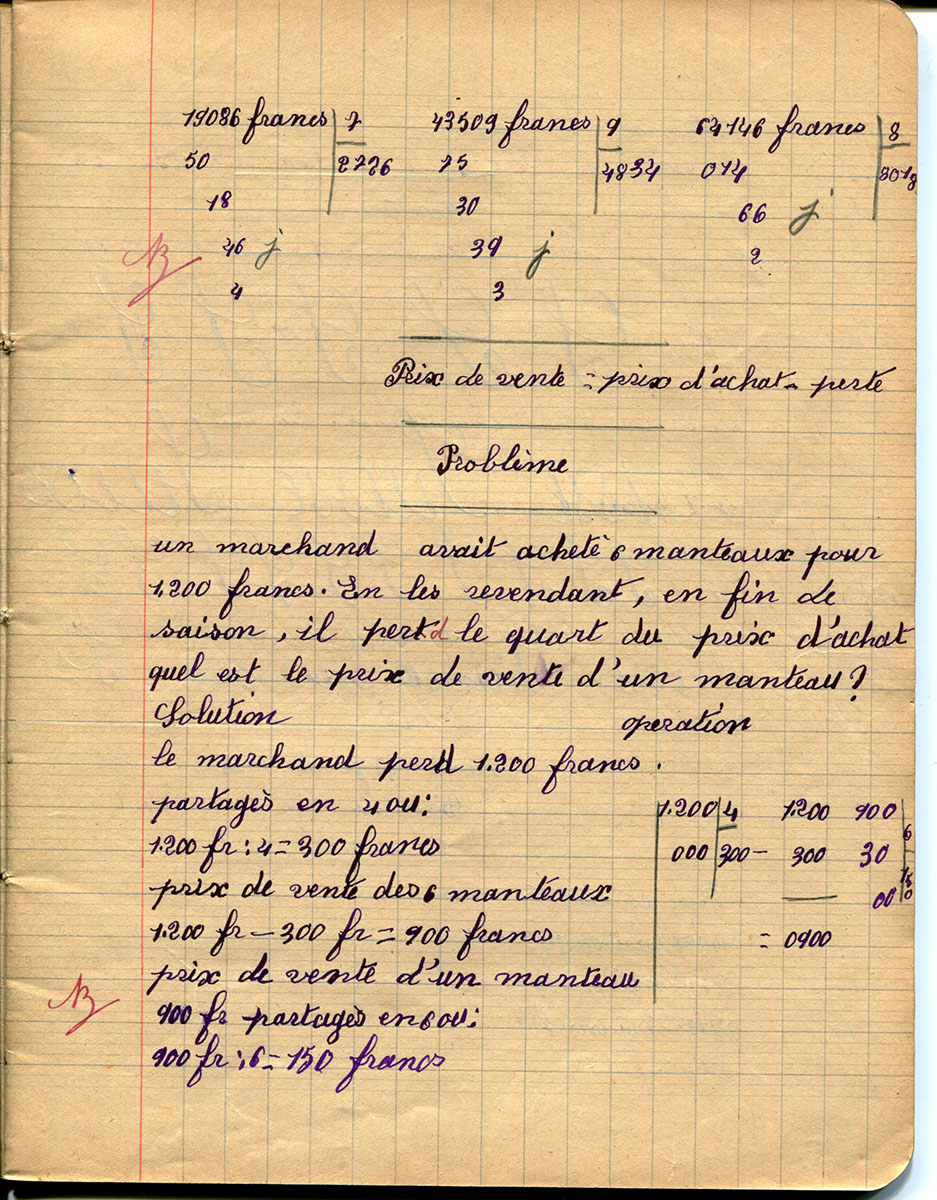 19086 francs 7 43509 francs 9 64146 francs 8
50 2726 75 4834 014 8018
18 30 66 j
46 j 39 j 2
B
4 3
Prix de vente = prix d'achat - perte
Problème
un marchand avait acheté 6 manteaux pour
1.200 francs. En les revendant, en fin de
saison, il pertd le quart du prix d'achat
quel est le prix de vente d'un manteau?
Solution operation
le marchand perd 1.200 francs.
partagés en 4 ou:
1.200 4 1.200 900 6
1.200 fr : 4 = 300 francs
000 300 - 300 30 150
prix de vente des 6 manteaux
00
1.200 fr - 300 fr = 900 francs
= 0900
prix de vente d'un manteau
B
900 fr partagés en 6 ou:
900 fr : 6 = 150 francs